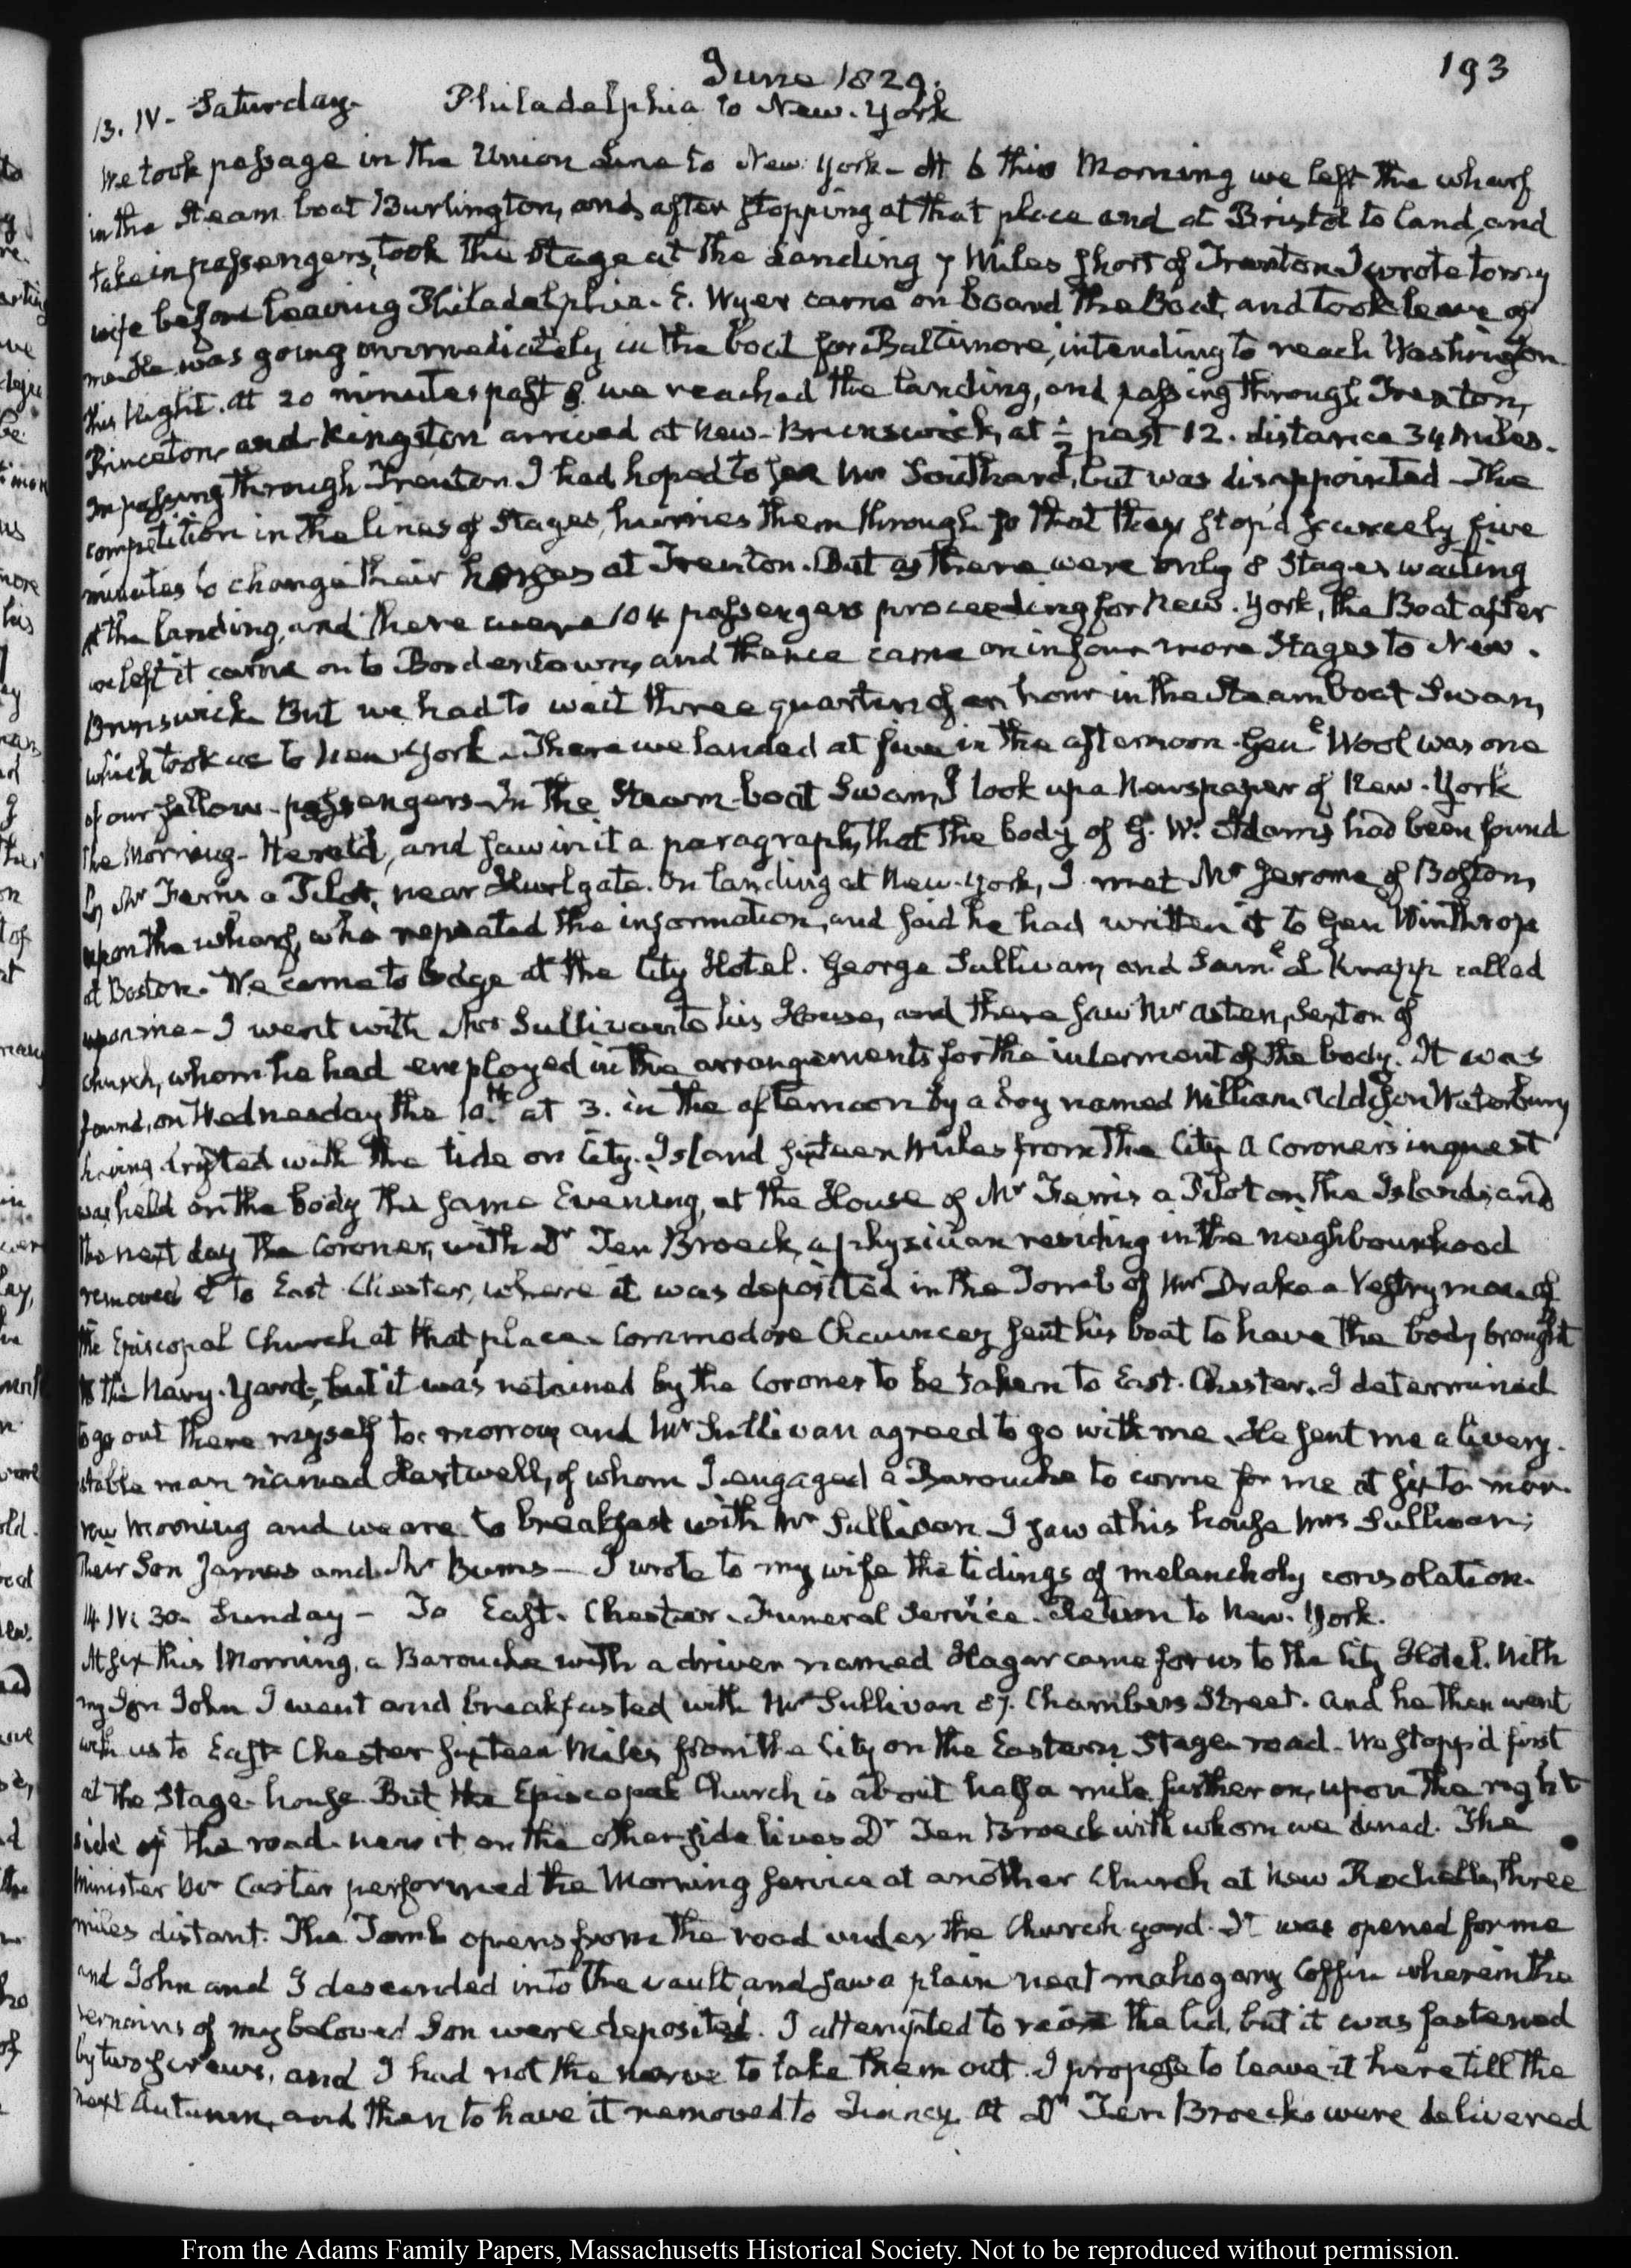 June 1829.
193
13. IV. Saturday. Philadelphia to New-York
We took passage in the Union Line to New York - At 6 this Morning we left the wharf
in the Steam boat Burlington, and after stopping at that place and at Bristol to land, and
take in passengers, took the Stage at the Landing 7 Miles short of Trenton. I wrote to my
wife before leaving Philadelphia. E. Wyer came on board the Boat, and took leave of
me. He was going immediately in the boat for Baltimore, intending to reach Washington
this Night. At 20 minutes past 8 we reached the landing, and passing through Trenton,
Princeton, and Kingston arrived at New-Brunswick, at ½ past 12. distance 34 Miles.
In passing through Trenton I had hoped to see Mr Southard, but was disappointed - The
competition in the lines of Stages, hurries them through so that they stop'd scarcely five
minutes to change their horses at Trenton. But as there were only 8 Stages waiting
at the landing, and there were 104 passengers proceeding for New-York, the Boat after
we left it came on to Bordentown, and thence came on in four more Stages to New-
Brunswick. But we had to wait three quarters of an hour in the Steam boat Swan,
which took us to New York. There we landed at five in the afternoon. Genl Wool was one
of our fellow-passengers. In the Steam-boat Swan, I took up a Newspaper of New-York
the Morning-Herald, and saw in it a paragraph, that the body of G. W. Adams had been found
by Mr Ferris a Pilot, near Hurlgate. On landing at New-York, I met Mr Jerome of Boston,
upon the wharf, who repeated the information, and said he had written it to Genl Winthrop
at Boston. We came to lodge at the City Hotel. George Sullivan, and Saml L Knapp called
upon me - I went with Mr Sullivan to his House, and there saw Mr Asten, Sexton of
church, whom he had employed in the arrangements for the interment of the body. It was
found, on Wednesday the 10th at 3. in the afternoon by a boy named William Addison Waterbury
having drifted with the tide on City-Island sixteen Miles from the City. A Coroner's inquest
was held on the body the same Evening, at the House of Mr Ferris a Pilot on the Island; and
the next day the Coroner, with Dr Ten Broeck, a physician residing in the neighbourhood
removed it to East Chester, where it was deposited in the Tomb of Mr Drake a Vestryman of
the Episcopal Church at that place. Commodore Chauncey sent his boat to have the body brought
to the Navy-Yard; but it was retained by the Coroner to be taken to East-Chester. I determined
to go out there myself to-morrow and Mr Sullivan agreed to go with me. He sent me a livery-
stable man named Hartwell, of whom I engaged a Barouche to come for me at six to-mor-
row Morning and we are to breakfast with Mr Sullivan. I saw at his house Mrs Sullivan;
their Son James and Mr Bums - I wrote to my wife the tidings of melancholy consolation.
14. IV: 30. Sunday - To East-Chester. Funeral Service. Return to New-York.
At six this Morning, a Barouche with a driver named Hagar came for us to the City Hotel. With
my Son John I went and breakfasted with Mr Sullivan 87. Chambers Street. and he then went
with us to East Chester sixteen Miles from the City on the Eastern Stage-road. We stopp'd first
at the Stage-house. But the Episcopal Church is about half a mile further on, upon the right
side of the road. near it on the other side lives Dr Ten Broeck with whom we dined. The
Minister Mr Carter performed the Morning service at another Church at New Rochelle, three
miles distant. The Tomb opens from the road under the Church yard. It was opened for me
and John and I descended into the vault, and saw a plain neat mahogany Coffin wherein the
remains of my beloved Son were deposited. I attempted to raise the lid, but it was fastened
by two screws, and I had not the nerve to take them out. I propose to leave it here till the
next Autumn, and then to have it removed to Quincy. At Dr Ten Broeck's were delivered
From the Adams Family Papers, Massachusetts Historical Society. Not to be reproduced without permission.